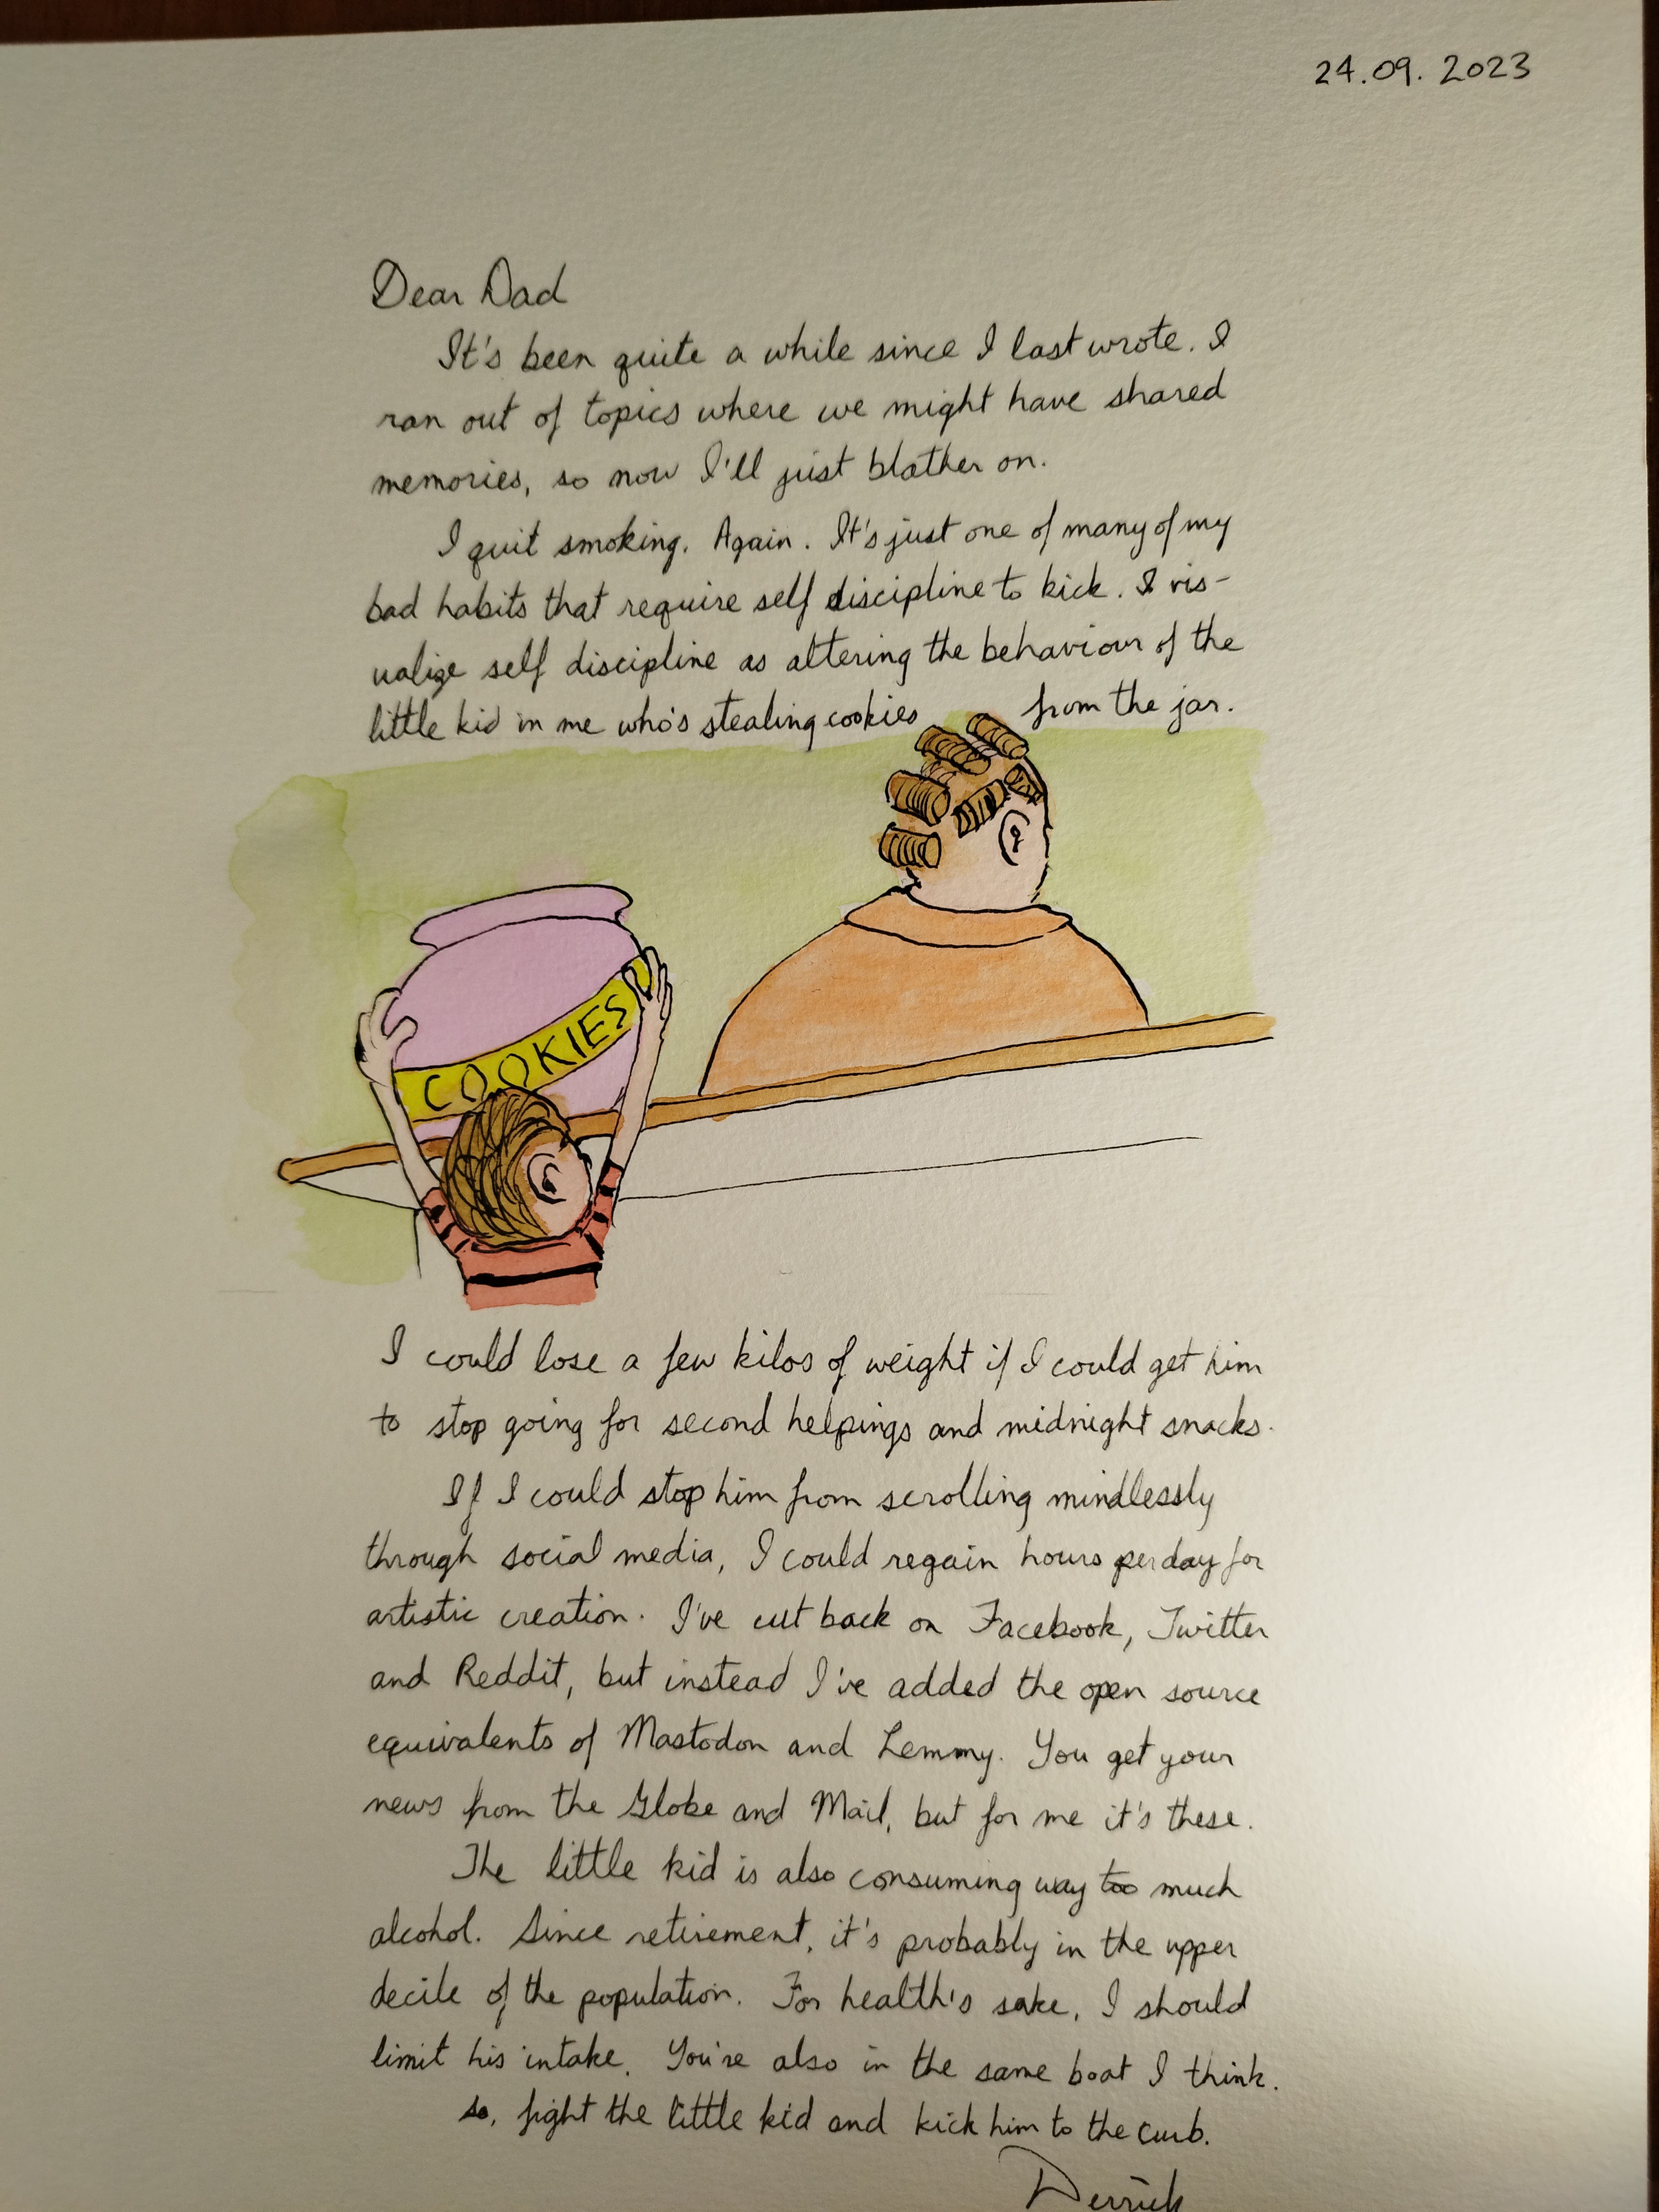 24.09.2023
Dear Dad
It's been quite a while since I last wrote. I
ran out of topics where we might have shared
memories, so now I'll just blather on.
I quit smoking. Again. It's just one of many of my
bad habits that require self discipline to kick. I vis-
ualize self discipline as altering the behaviour of the
little kid in me who's stealing cookies from the jar.
COOKIES
I could lose a few kilos of weight if I could get him
to stop going for second helpings and midnight snacks.
If I could stop him from scrolling mindlessly
through social media, I could regain hours per day for
artistic creation. I've cut back on Facebook, Twitter
and Reddit, but instead I've added the open source
equivalents of Mastodon and Lemmy. You get your
news from the Globe and Mail, but for me it's these.
The little kid is also consuming way too much
alcohol. Since retirement, it's probably in the upper
decile of the population. For health's sake, I should
limit his intake. You're also in the same boat I think.
so, fight the little kid and kick him to the curb.
Derrick